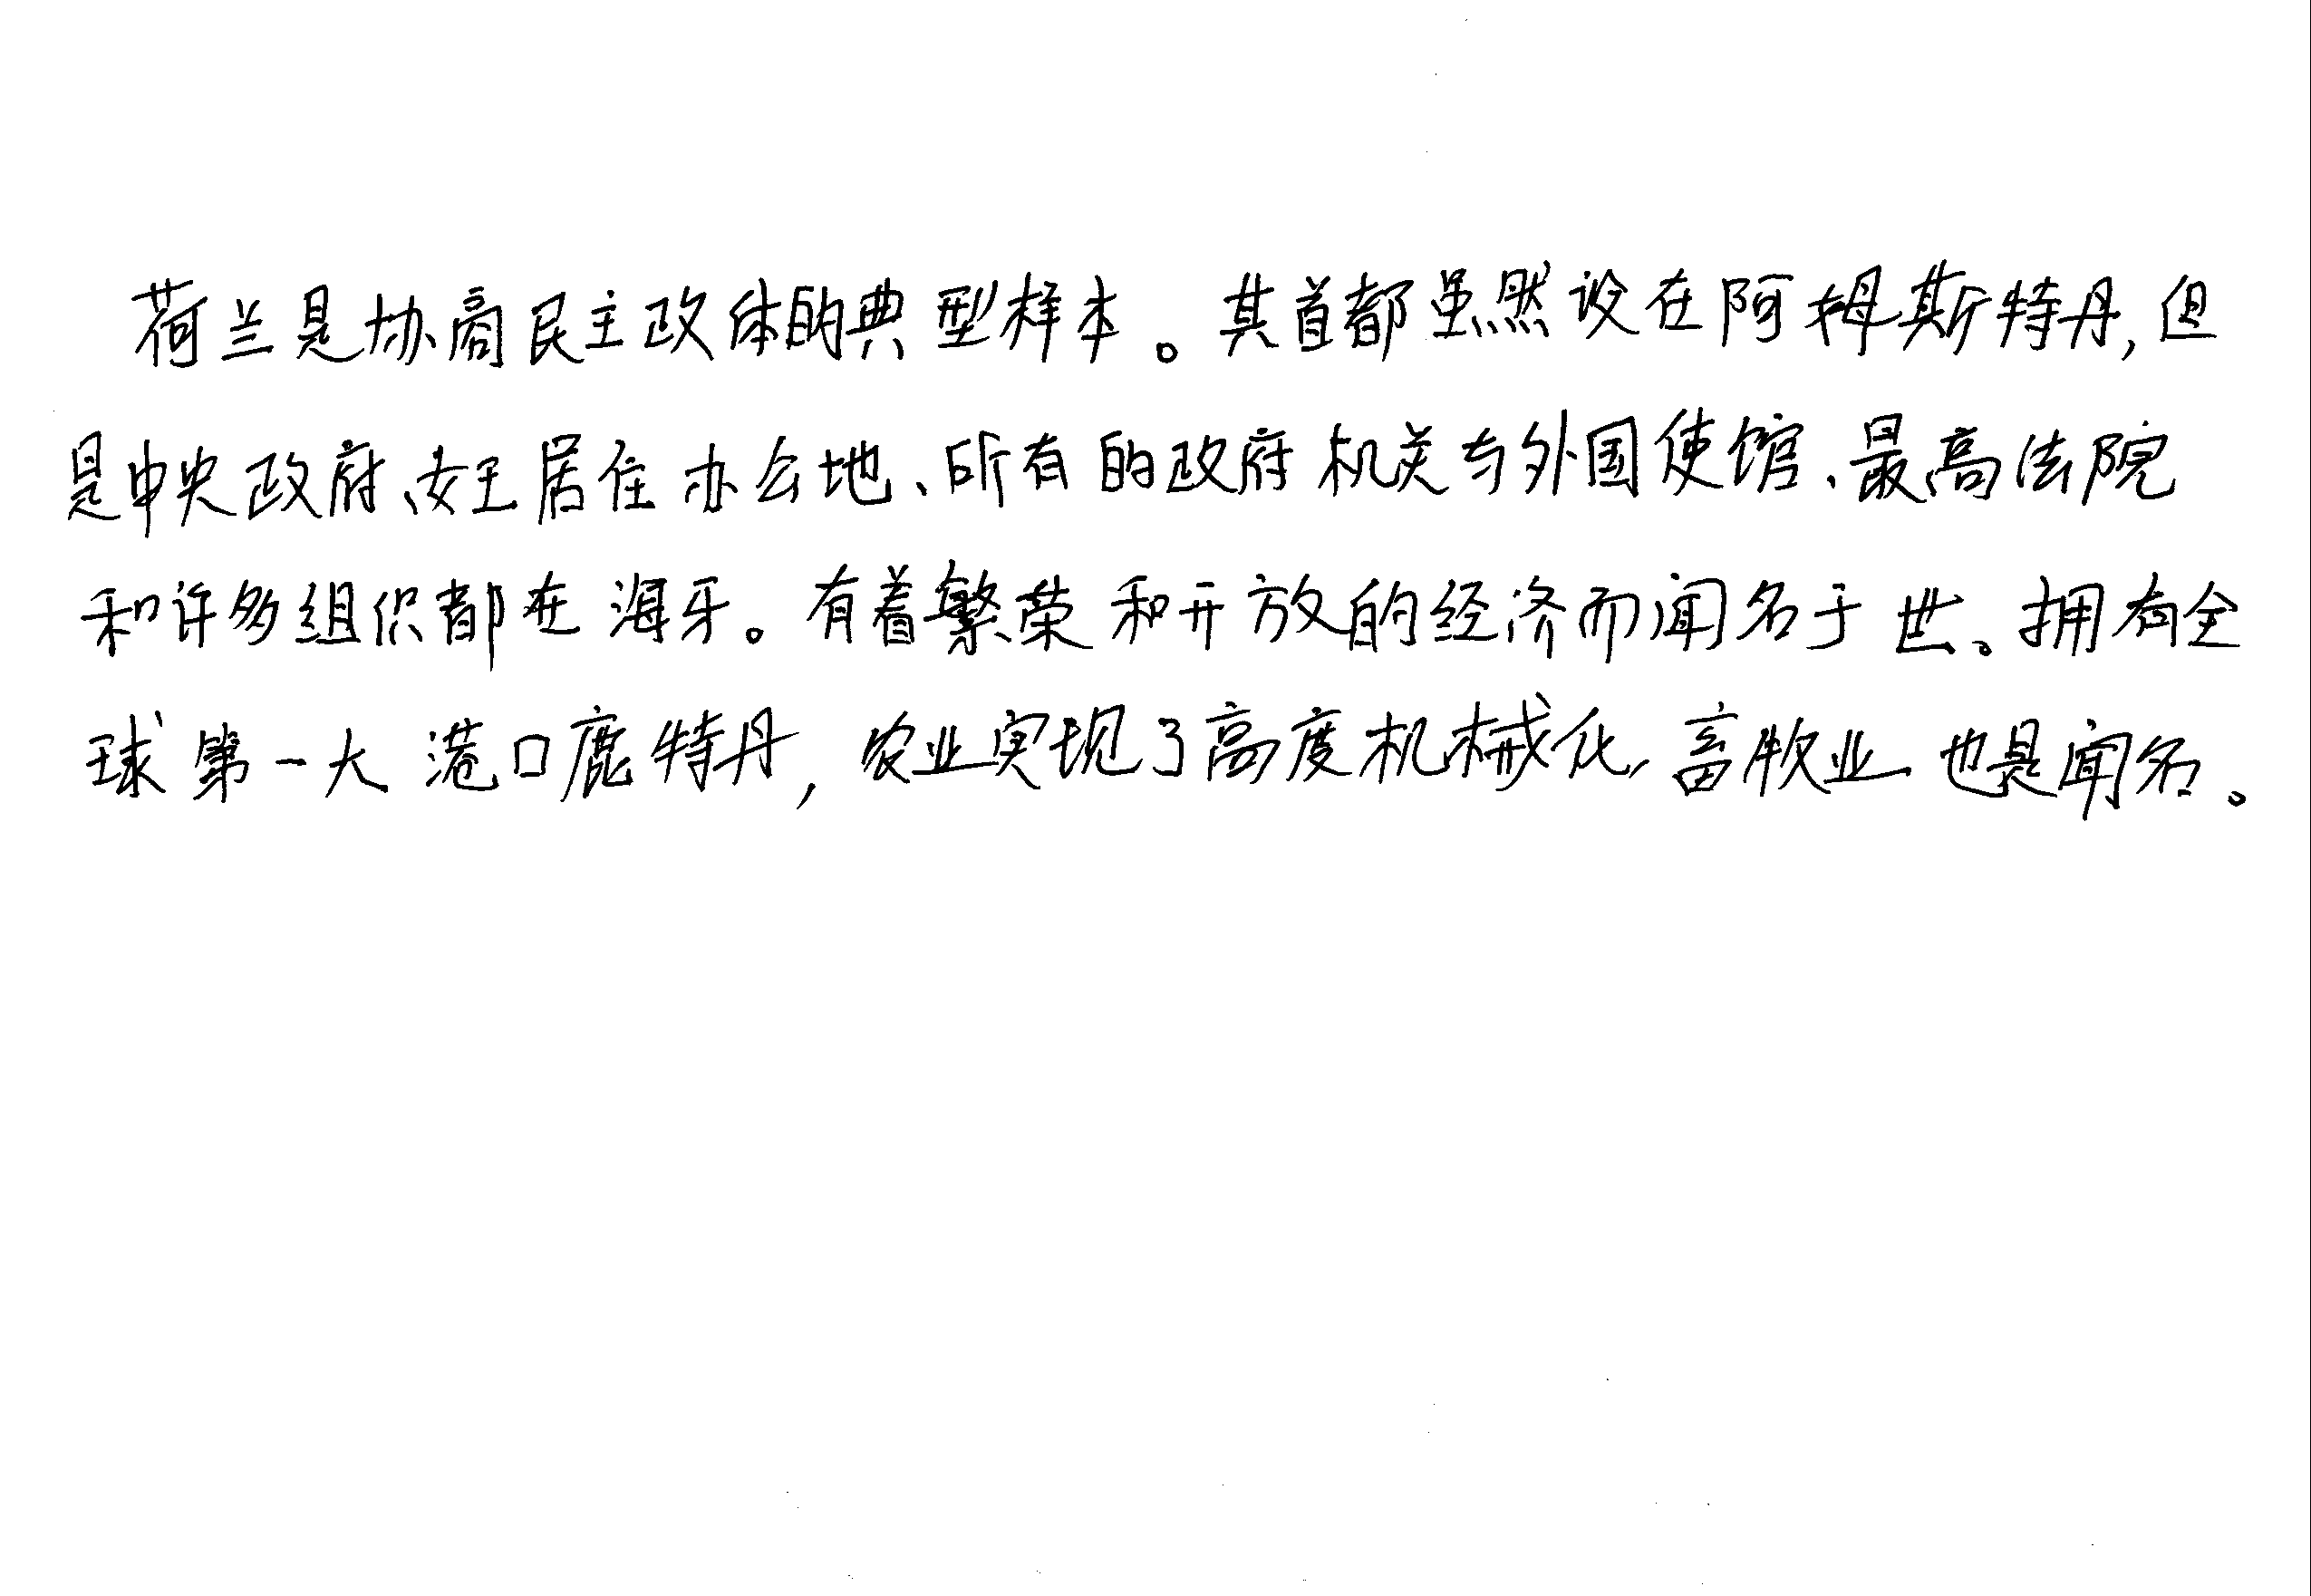 荷兰是协商民主政体的典型样本。其首都虽然设在阿姆斯特丹,但
是中央政府、女王居住办公地、所有的政府机关与外国使馆、最高法院
和许多组织都在海牙。有着繁荣和开放的经济而闻名于世。拥有全
球第一大港口鹿特丹,农业实现了高度机械化,畜牧业也是闻名。